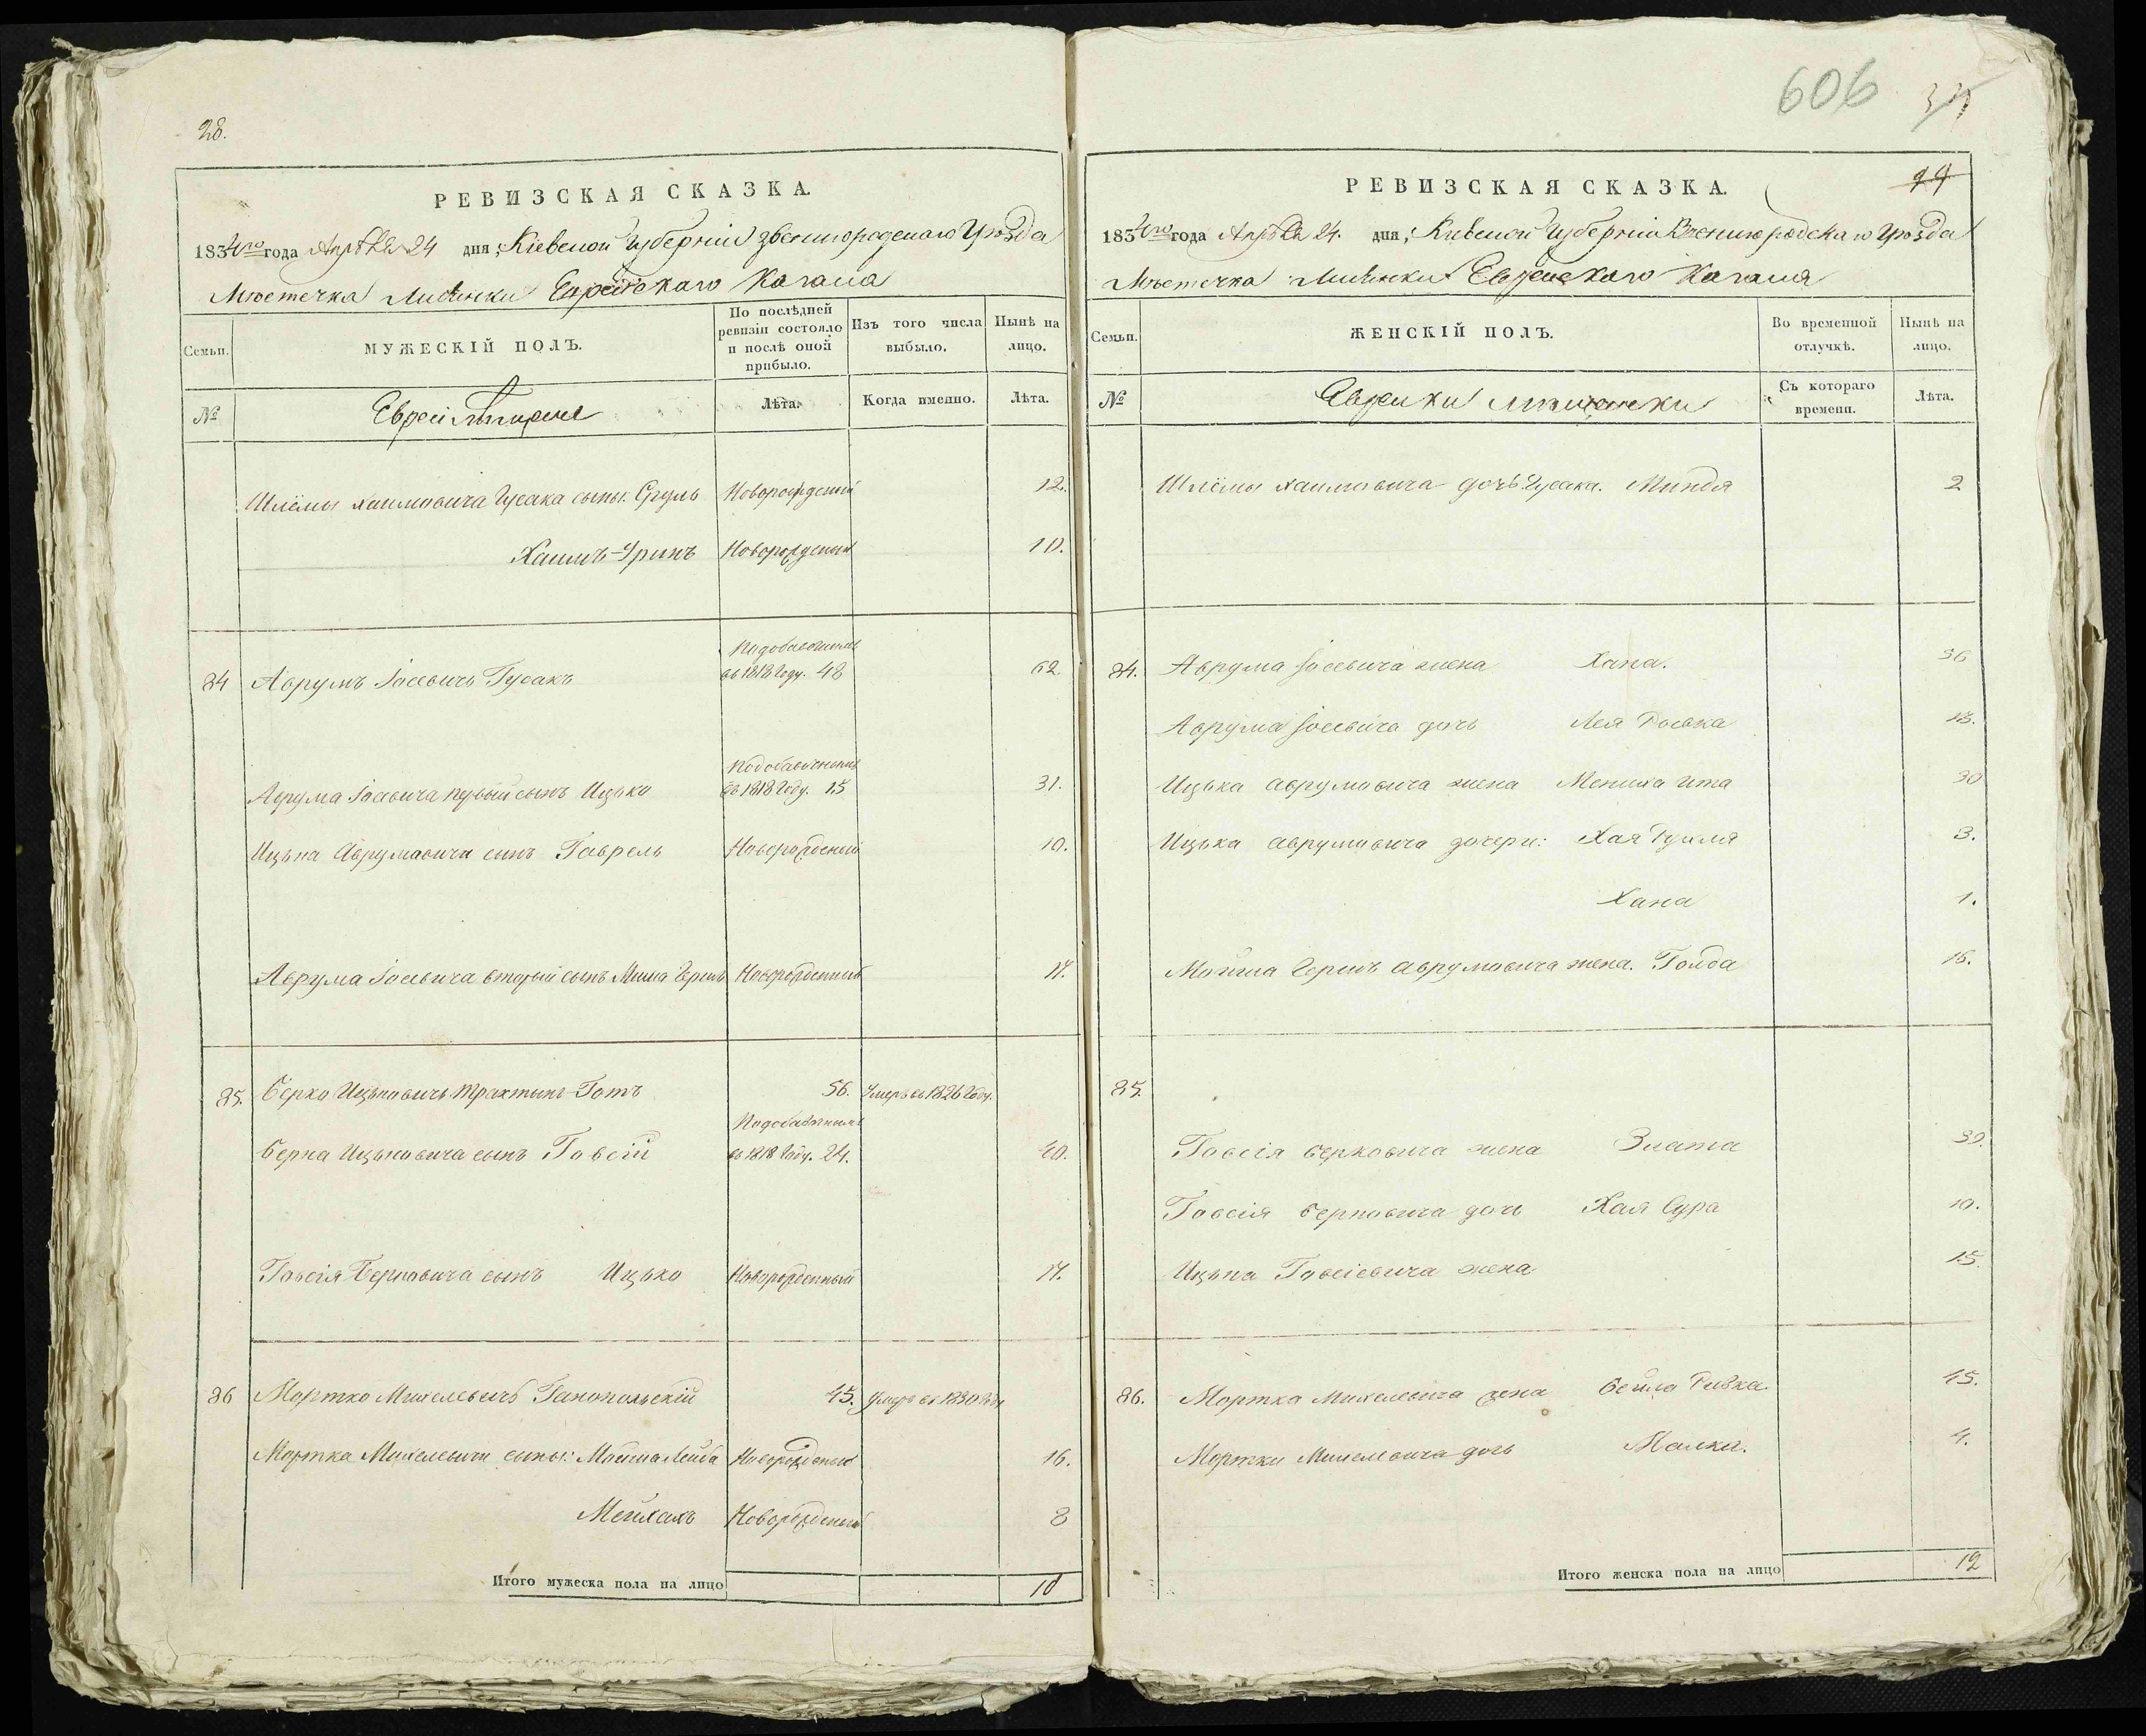 28.
РЕВИЗСКАЯ СКАЗКА.
1834го года Апреля 24 дня; Кіевской Губерніи Звенигородскаго Уѣзда
Мѣстечка Лисянки Еврейскаго Кагала
Семьи.
МУЖЕСКІЙ ПОЛЪ.
По послѣдней ревизіи состояло и послѣ оной прибыло.
Изъ того числа выбыло.
Нынѣ на лицо.
№
Евреи Мѣщане
Лѣта.
Когда именно.
Лѣта.
Шлёмы Хаимовича Гусака сыны: Сруль Новорожденый 12.
Хаимъ-Уринъ Новорожденый 10.
84 Аврумъ Іосевичъ Гусакъ
Подобавочнымъ
въ 1818 Году. 48 62.
Аврума Іосевича первый сынъ Ицько
Подобавочнымъ
въ 1818 Году. 15 31.
Ицька Аврумовича сынъ Гаврель Новорожденый 10.
Аврума Іосевича вторый сынъ Мошка Гершъ Новорожденный 17.
85. Берко Ицьковичъ Трахтын-Готъ 56. Умеръ въ 1826 Году.
Берка Ицьковича сынъ Говсій
Подобавочнымъ
въ 1818 Году. 24. 40.
Говсія Берковича сынъ Ицько Новорожденный 17.
86 Мортко Михелевичъ Ганопольскій 45. Умеръ въ 1830 Году
Мортка Михелевича сыны: Мошка Лейба Новорожденый 16.
Мейлахъ Новорожденый 8
Итого мужеска пола на лицо 10
606
РЕВИЗСКАЯ СКАЗКА.
1834го года Апрѣля 24. дня; Кіевской Губерніи Звенигородскаго Уѣзда
Мѣстечка Лисянки Еврейскаго Кагала
Семьи.
ЖЕНСКІЙ ПОЛЪ.
Во временной отлучкѣ.
Нынѣ на лицо.
№
Еврейки мѣщанки
Съ котораго времени.
Лѣта.
Шлёмы Хаимовича дочь Гусака. Миндя 2
84. Аврума Іосевича жена Хана. 36
Аврума Іосевича дочь Лея Роська 13.
Ицька Аврумовича жена Мениха Ита 30
Ицька Аврумовича дочери: Хая Рухля 3.
Хана 1.
Мошка Гершъ Аврумовича жена. Голда 16.
85.
Говсія Берковича жена Злата 39.
Говсія Берковича дочь Хая Сура 10.
Ицька Говсіевича жена 15.
86. Мортка Михелевича жена Бейла Ривка. 45.
Мортки Михелевича дочь Малка. 4.
Итого женска пола на лицо 12